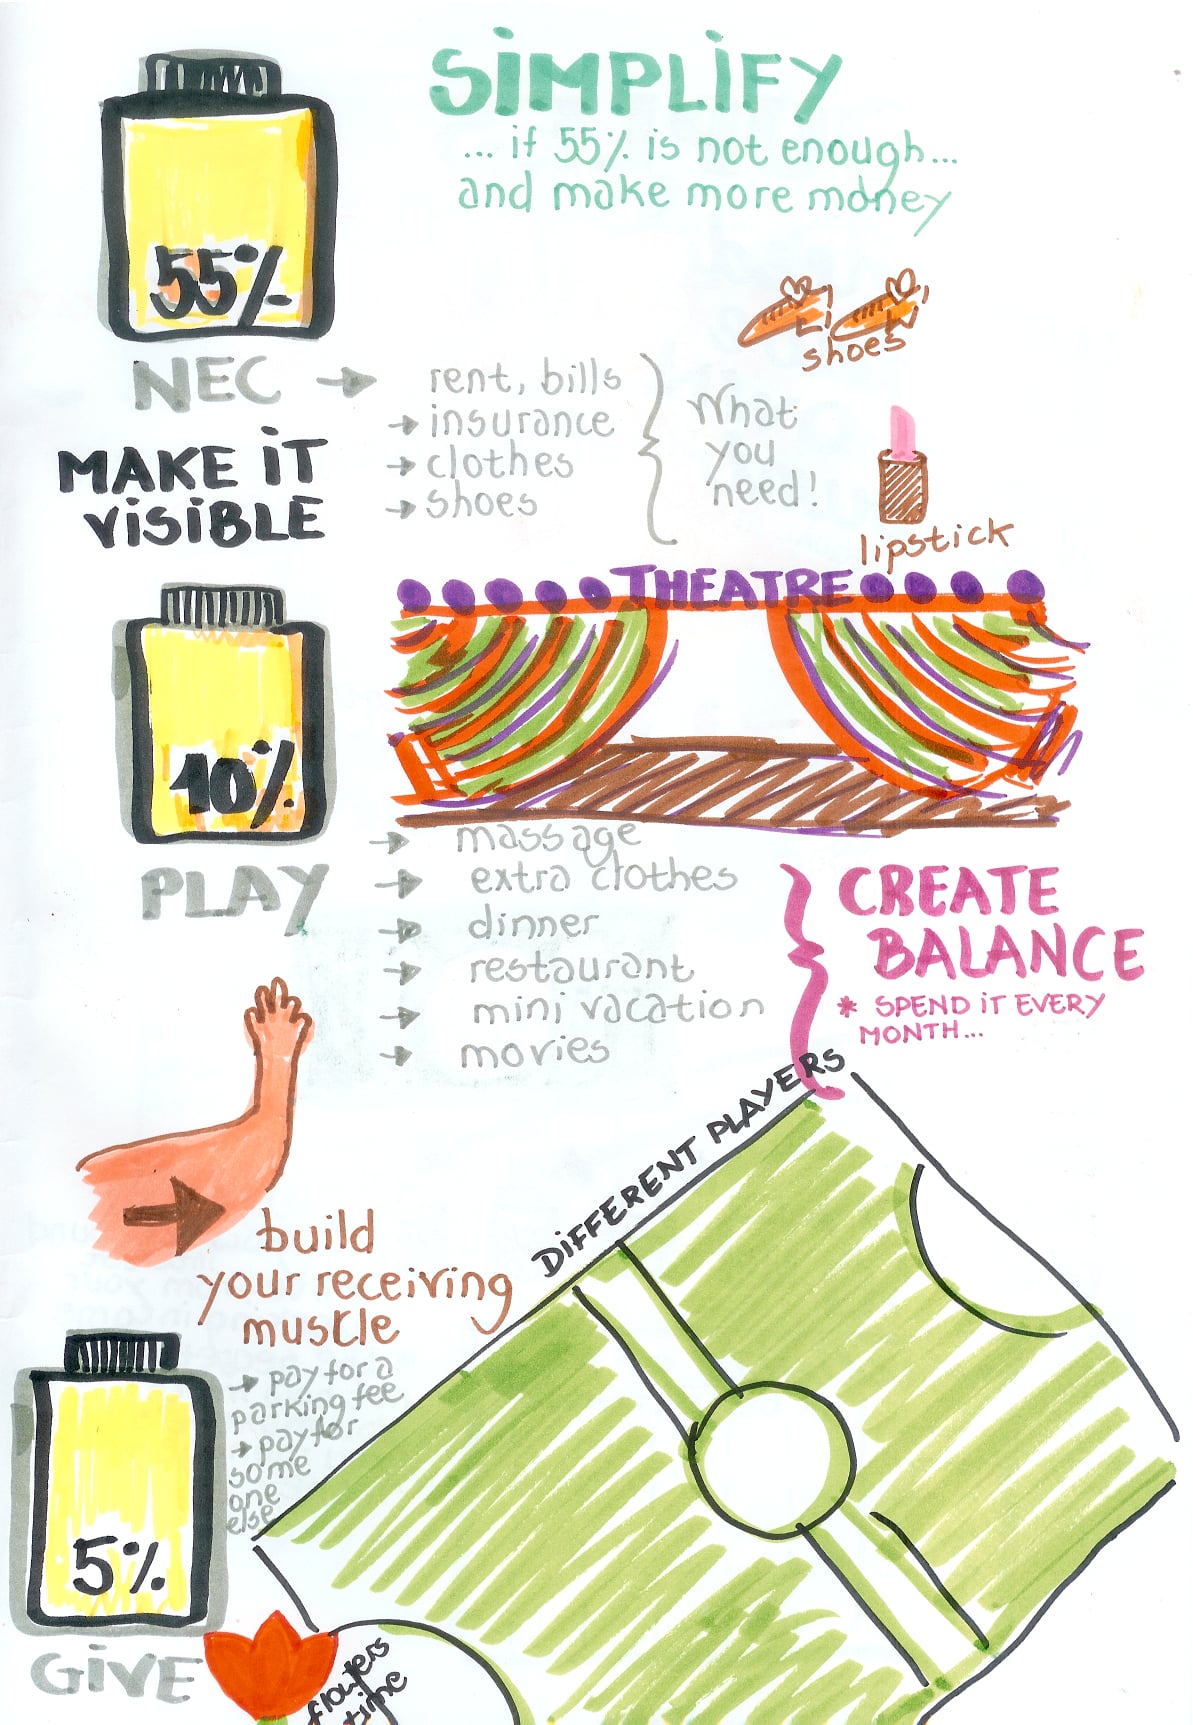 SiMPLiFY
... if 55% is not enough...
and make more money
55%
NEC → rent, bills
→ insurance
→ clothes
→ shoes
What
you
need!
shoes
lipstick
MAKE iT
ViSiBLE
THEATRE
10%
PLAY
→ massage
→ extra clothes
→ dinner
→ restaurant
→ mini vacation
→ movies
CREATE
BALANCE
* SPEND iT EVERY
MONTH...
DiFFERENT PLAYERS
build
your receiving
muscle
→ pay for a
parking fee
→ pay for
some
one
else
5%
GiVE
flowers
time